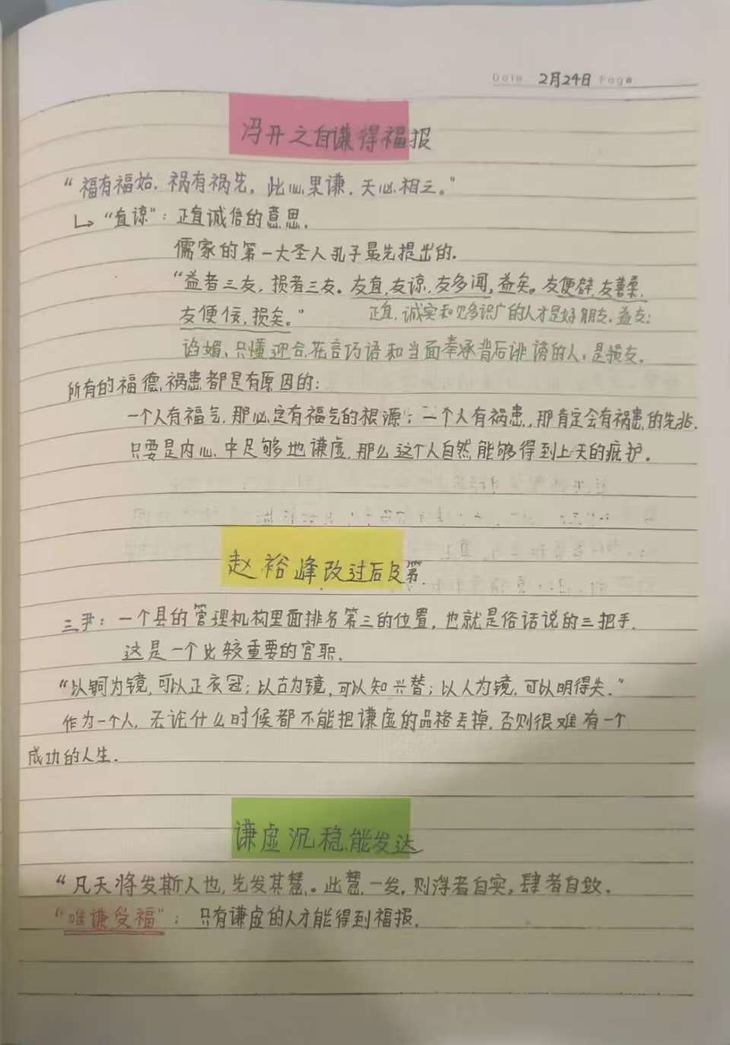 Date 2月24日 Page
冯开之自谦得福报
“福有福始,祸有祸先,此心果谦,天必相之。”
↳“直谅”:正直诚信的意思.
儒家的第一大圣人孔子最先提出的.
“益者三友,损者三友。友直,友谅,友多闻,益矣。友便辟,友善柔,
友便佞,损矣。” 正直,诚实和见多识广的人才是好朋友,益友;
谄媚、只懂迎合花言巧语和当面奉承背后诽谤的人,是损友.
所有的福德、祸患都是有原因的:
一个人有福气,那必定有福气的根源;一个人有祸患,那肯定会有祸患的先兆.
只要是内心中足够地谦虚,那么这个人自然能够得到上天的庇护.
赵裕峰改过后及第.
三尹:一个县的管理机构里面排名第三的位置,也就是俗话说的三把手.
这是一个比较重要的官职.
“以铜为镜,可以正衣冠;以古为镜,可以知兴替;以人为镜,可以明得失.”
作为一个人,无论什么时候都不能把谦虚的品格丢掉,否则很难有一个
成功的人生.
谦虚沉稳能发达
“凡天将发斯人也,先发其慧。此慧一发,则浮者自实,肆者自敛.
“唯谦受福”:只有谦虚的人才能得到福报.